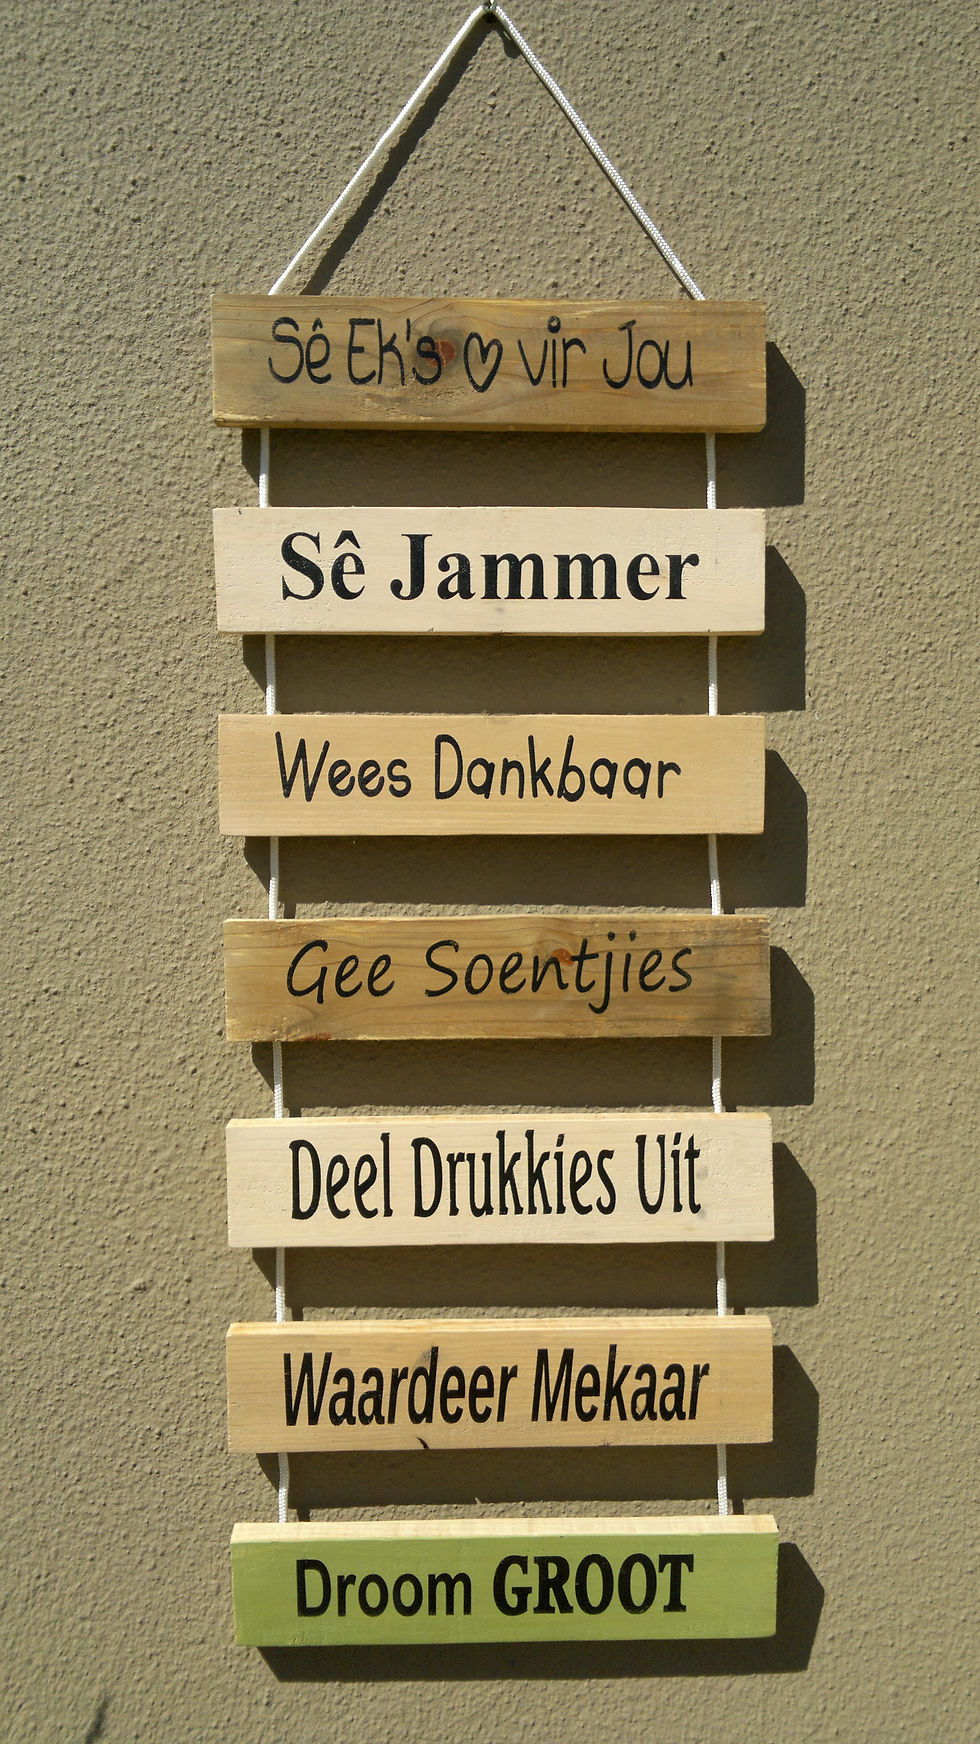 Sê Ek's ♡ vir Jou
Sê Jammer
Wees Dankbaar
Gee Soentjies
Deel Drukkies Uit
Waardeer Mekaar
Droom GROOT